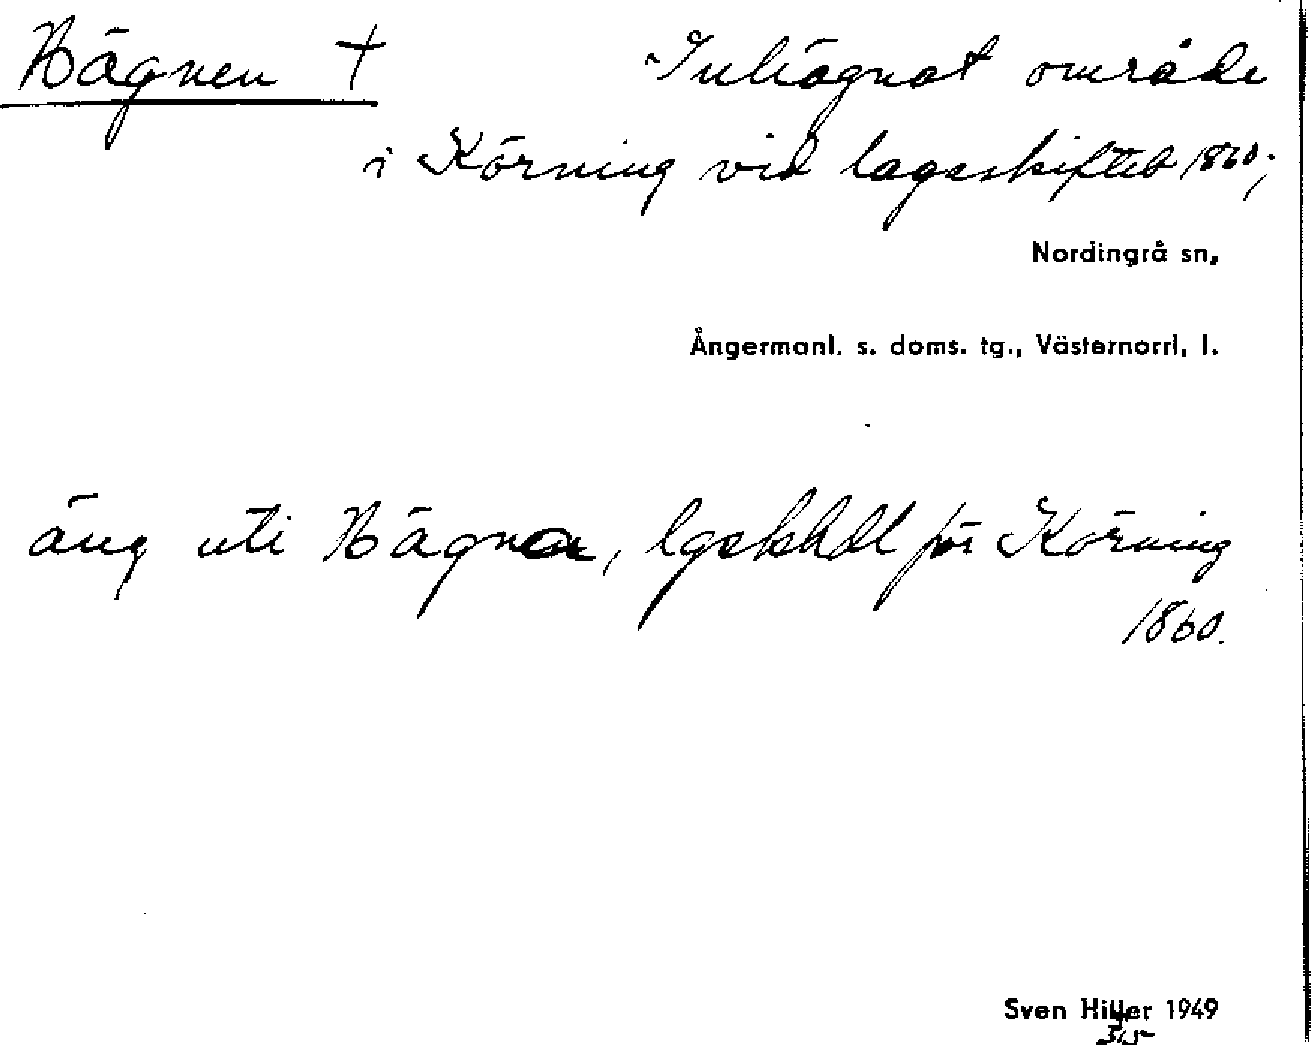 Hägnen †
Inhägnat område
i Körning vid lagaskiftet 1860;
Nordingrå sn,
Ångermanl. s. doms. tg., Västernorrl. l.
äng uti Hägna, lgskhdl för Körning
1860.
Sven Hiller 1949